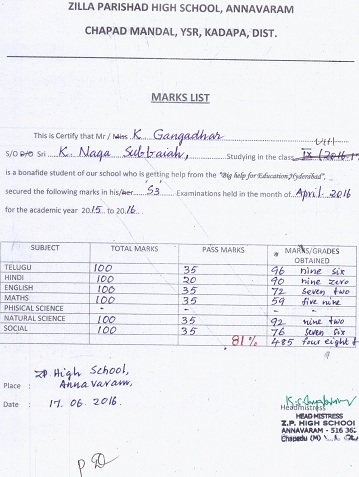 ZILLA PARISHAD HIGH SCHOOL, ANNAVARAM
CHAPAD MANDAL, YSR, KADAPA, DIST.
MARKS LIST
This is Certify that Mr / Miss K Gangadhar
VIII
S/O D/O Sri K. Naga Subbaiah, Studying in the class IX (2016-1
is a bonafide student of our school who is getting help from the "Big help for Education,Hyderabad",
secured the following marks in his/her S3 Examinations held in the month of April 2016
for the academic year 2015 to 2016.
SUBJECT TOTAL MARKS PASS MARKS MARKS/GRADES OBTAINED
TELUGU 100 35 96 nine six
HINDI 100 20 90 nine zero
ENGLISH 100 35 72 seven two
MATHS 100 35 59 five nine
PHISICAL SCIENCE - - - -
NATURAL SCIENCE 100 35 92 nine two
SOCIAL 100 35 76 seven six
81% 485 four eight f
Place : Z.P. High School,
Annavaram,
Date : 17.06.2016.
Headmistress
HEAD MISTRESS
Z.P. HIGH SCHOOL
ANNAVARAM - 516 362
Chapadu (M)